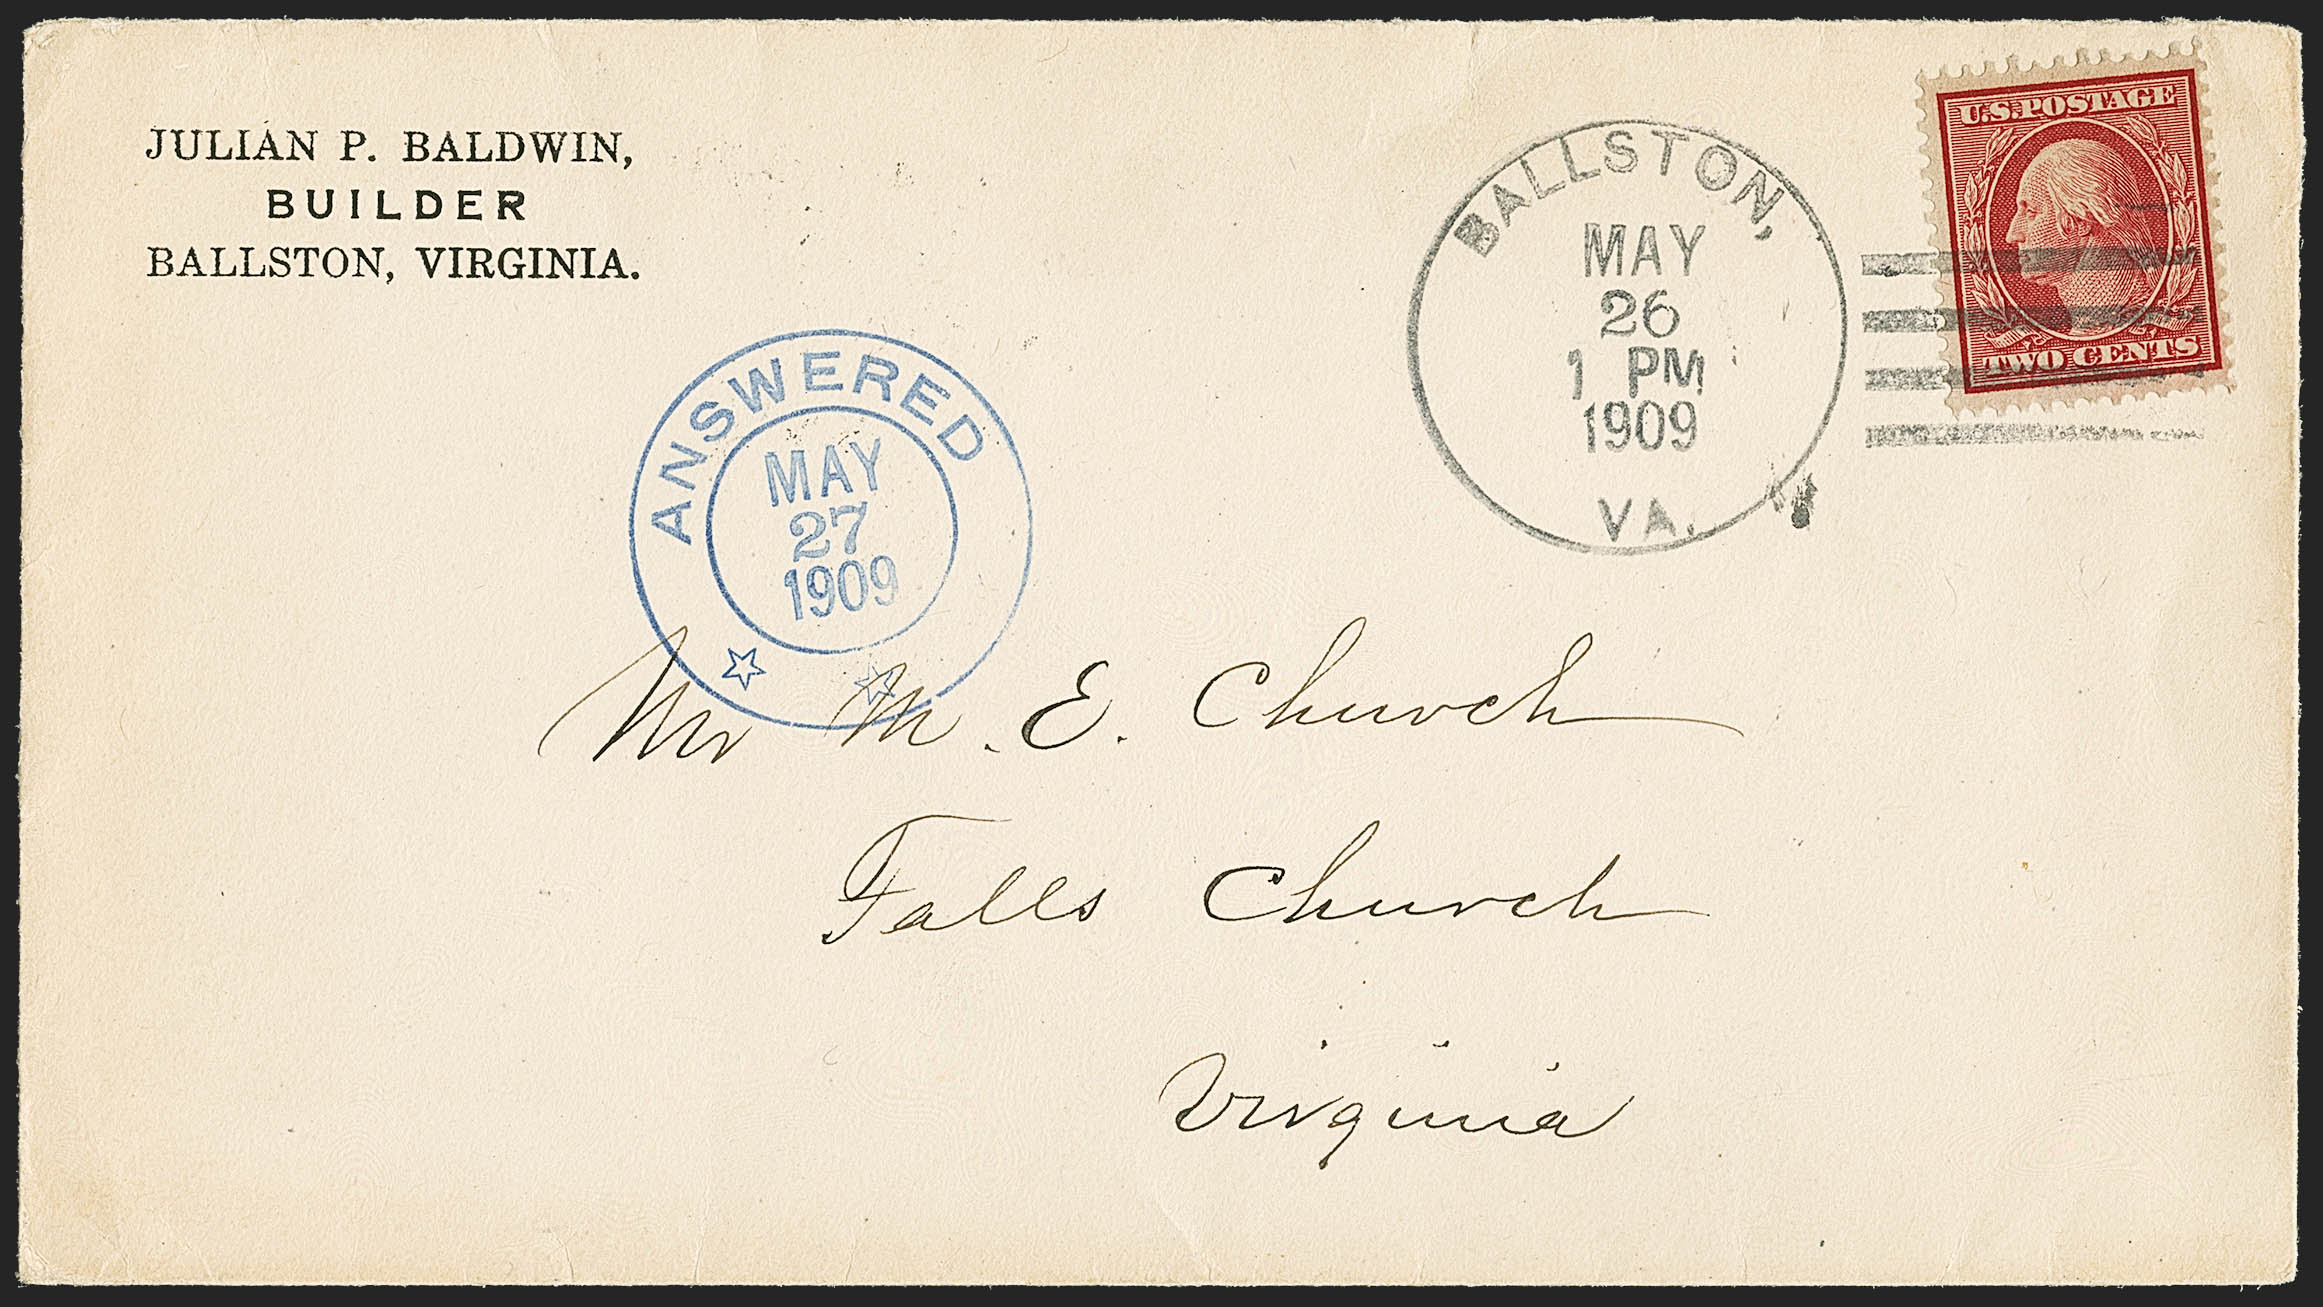 JULIAN P. BALDWIN,
BUILDER
BALLSTON, VIRGINIA.
U.S. POSTAGE
TWO CENTS
BALLSTON,
MAY
26
1 PM
1909
VA.
ANSWERED
MAY
27
1909
Mr M. E. Church
Falls Church
Virginia